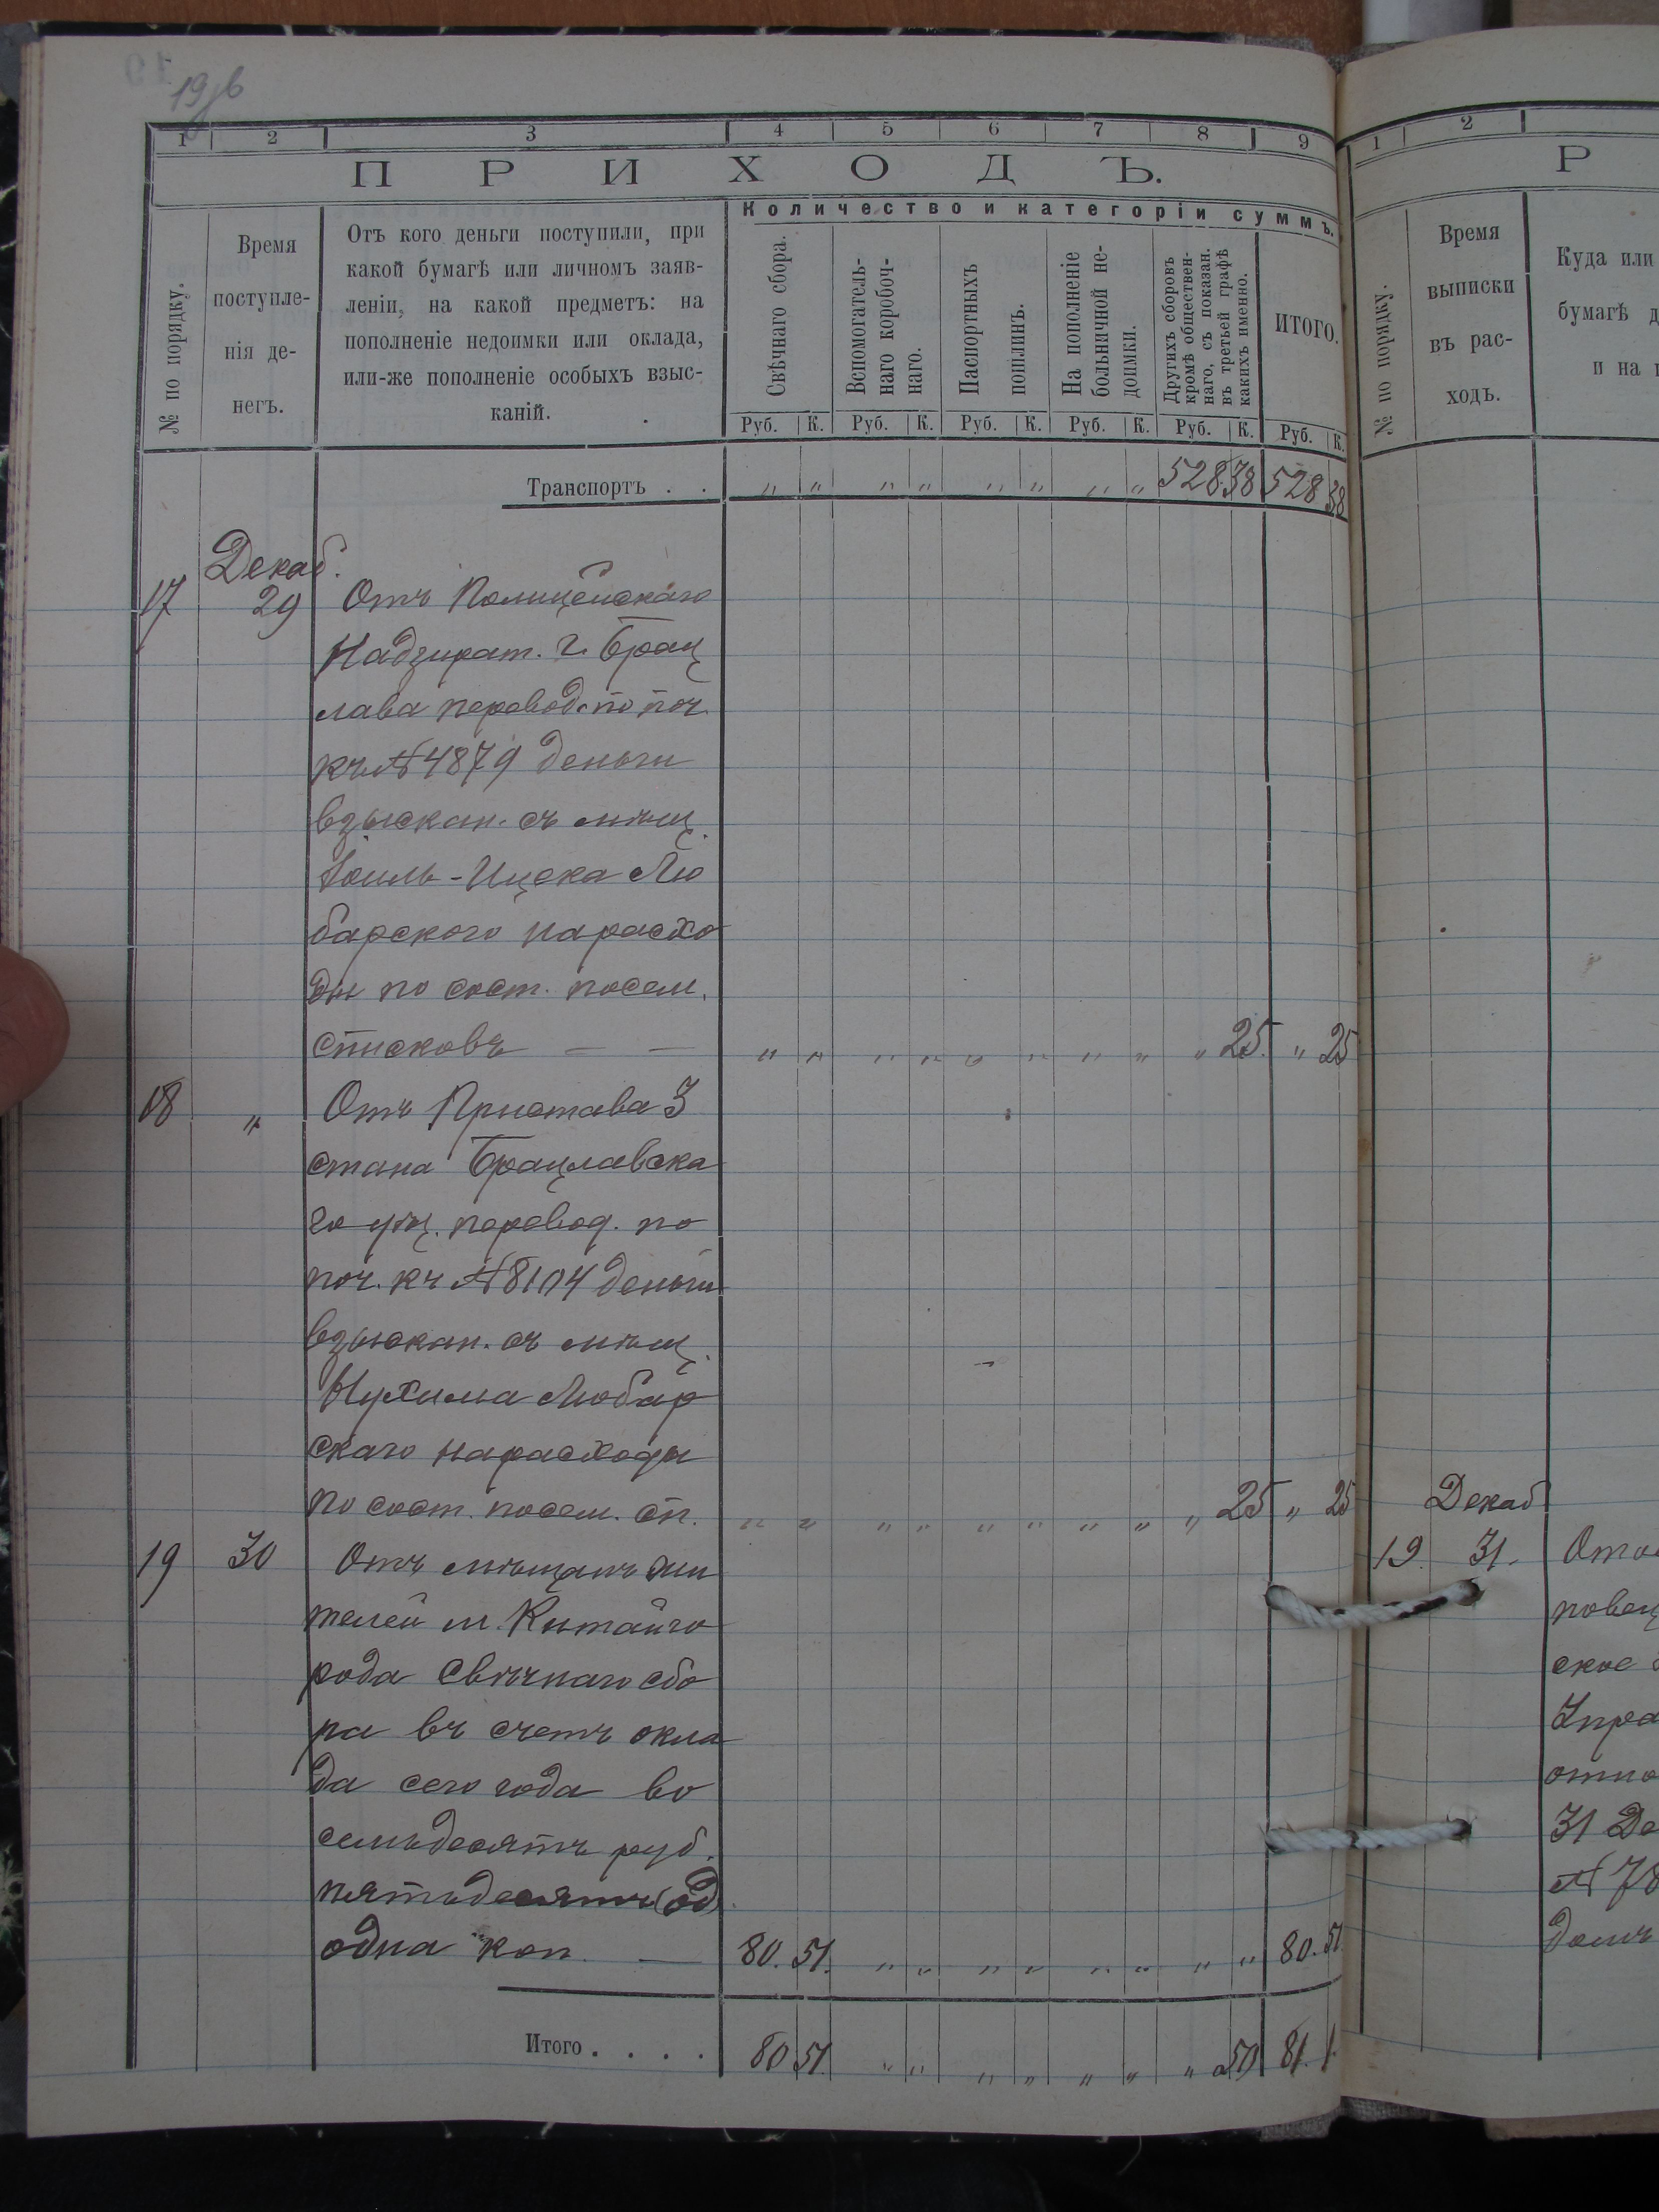 19 об
1 2 3 4 5 6 7 8 9
ПРИХОДЪ.
№ по порядку.
Время
поступле-
нія де-
негъ.
Отъ кого деньги поступили, при
какой бумагѣ или личномъ заяв-
леніи, на какой предметъ: на
пополненіе недоимки или оклада,
или-же пополненіе особыхъ взыс-
каній.
Количество и категоріи суммъ.
Свѣчнаго сбора.
Вспомогатель-
наго коробоч-
наго.
Паспортныхъ
пошлинъ.
На пополненіе
больничной не-
доимки.
Другихъ сборовъ
кромѣ обществен-
наго, съ показан.
въ третьей графѣ
какихъ именно.
ИТОГО.
Руб. К. Руб. К. Руб. К. Руб. К. Руб. К. Руб. К.
Транспортъ . . „ „ „ „ „ „ „ „ 528 38 528 38
Декаб.
17 29 Отъ Полицейскаго
Надзират. г. Брац
лава перевод. по поч.
къ № 4879 деньги
взыскан. съ мѣщ.
Іоиль-Ицека Лю
барского на расхо
ды по сост. посем.
списковъ — — „ „ „ „ „ „ „ „ „ 25. „ 25
18 „ Отъ Пристава 3
стана Брацлавска
го уѣз. перевод. по
поч. къ № 8104 деньги
взыскан. съ мѣщ.
Нухима Любар
скаго на расходы
по сост. посем. сп. „ „ „ „ „ „ „ „ „ 25 „ 25
19 30 Отъ мѣщанъ жи
телей м. Китайго
рода Свѣчнаго сбо
ра въ счетъ окла
да сего года во
семьдесятъ руб.
пятьдесятъ (од)
одна коп. — 80. 51. „ „ „ „ „ „ „ „ 80. 51.
Итого . . . . 80 51. „ „ „ „ „ „ „ 50 81. 1.
1 2
Р
№ по порядку.
Время
выписки
въ рас-
ходъ.
Куда или
бумагѣ д
и на
Декаб
19. 31. Ото
повец
ское
Упра
отно
31 Де
№ 78
домъ